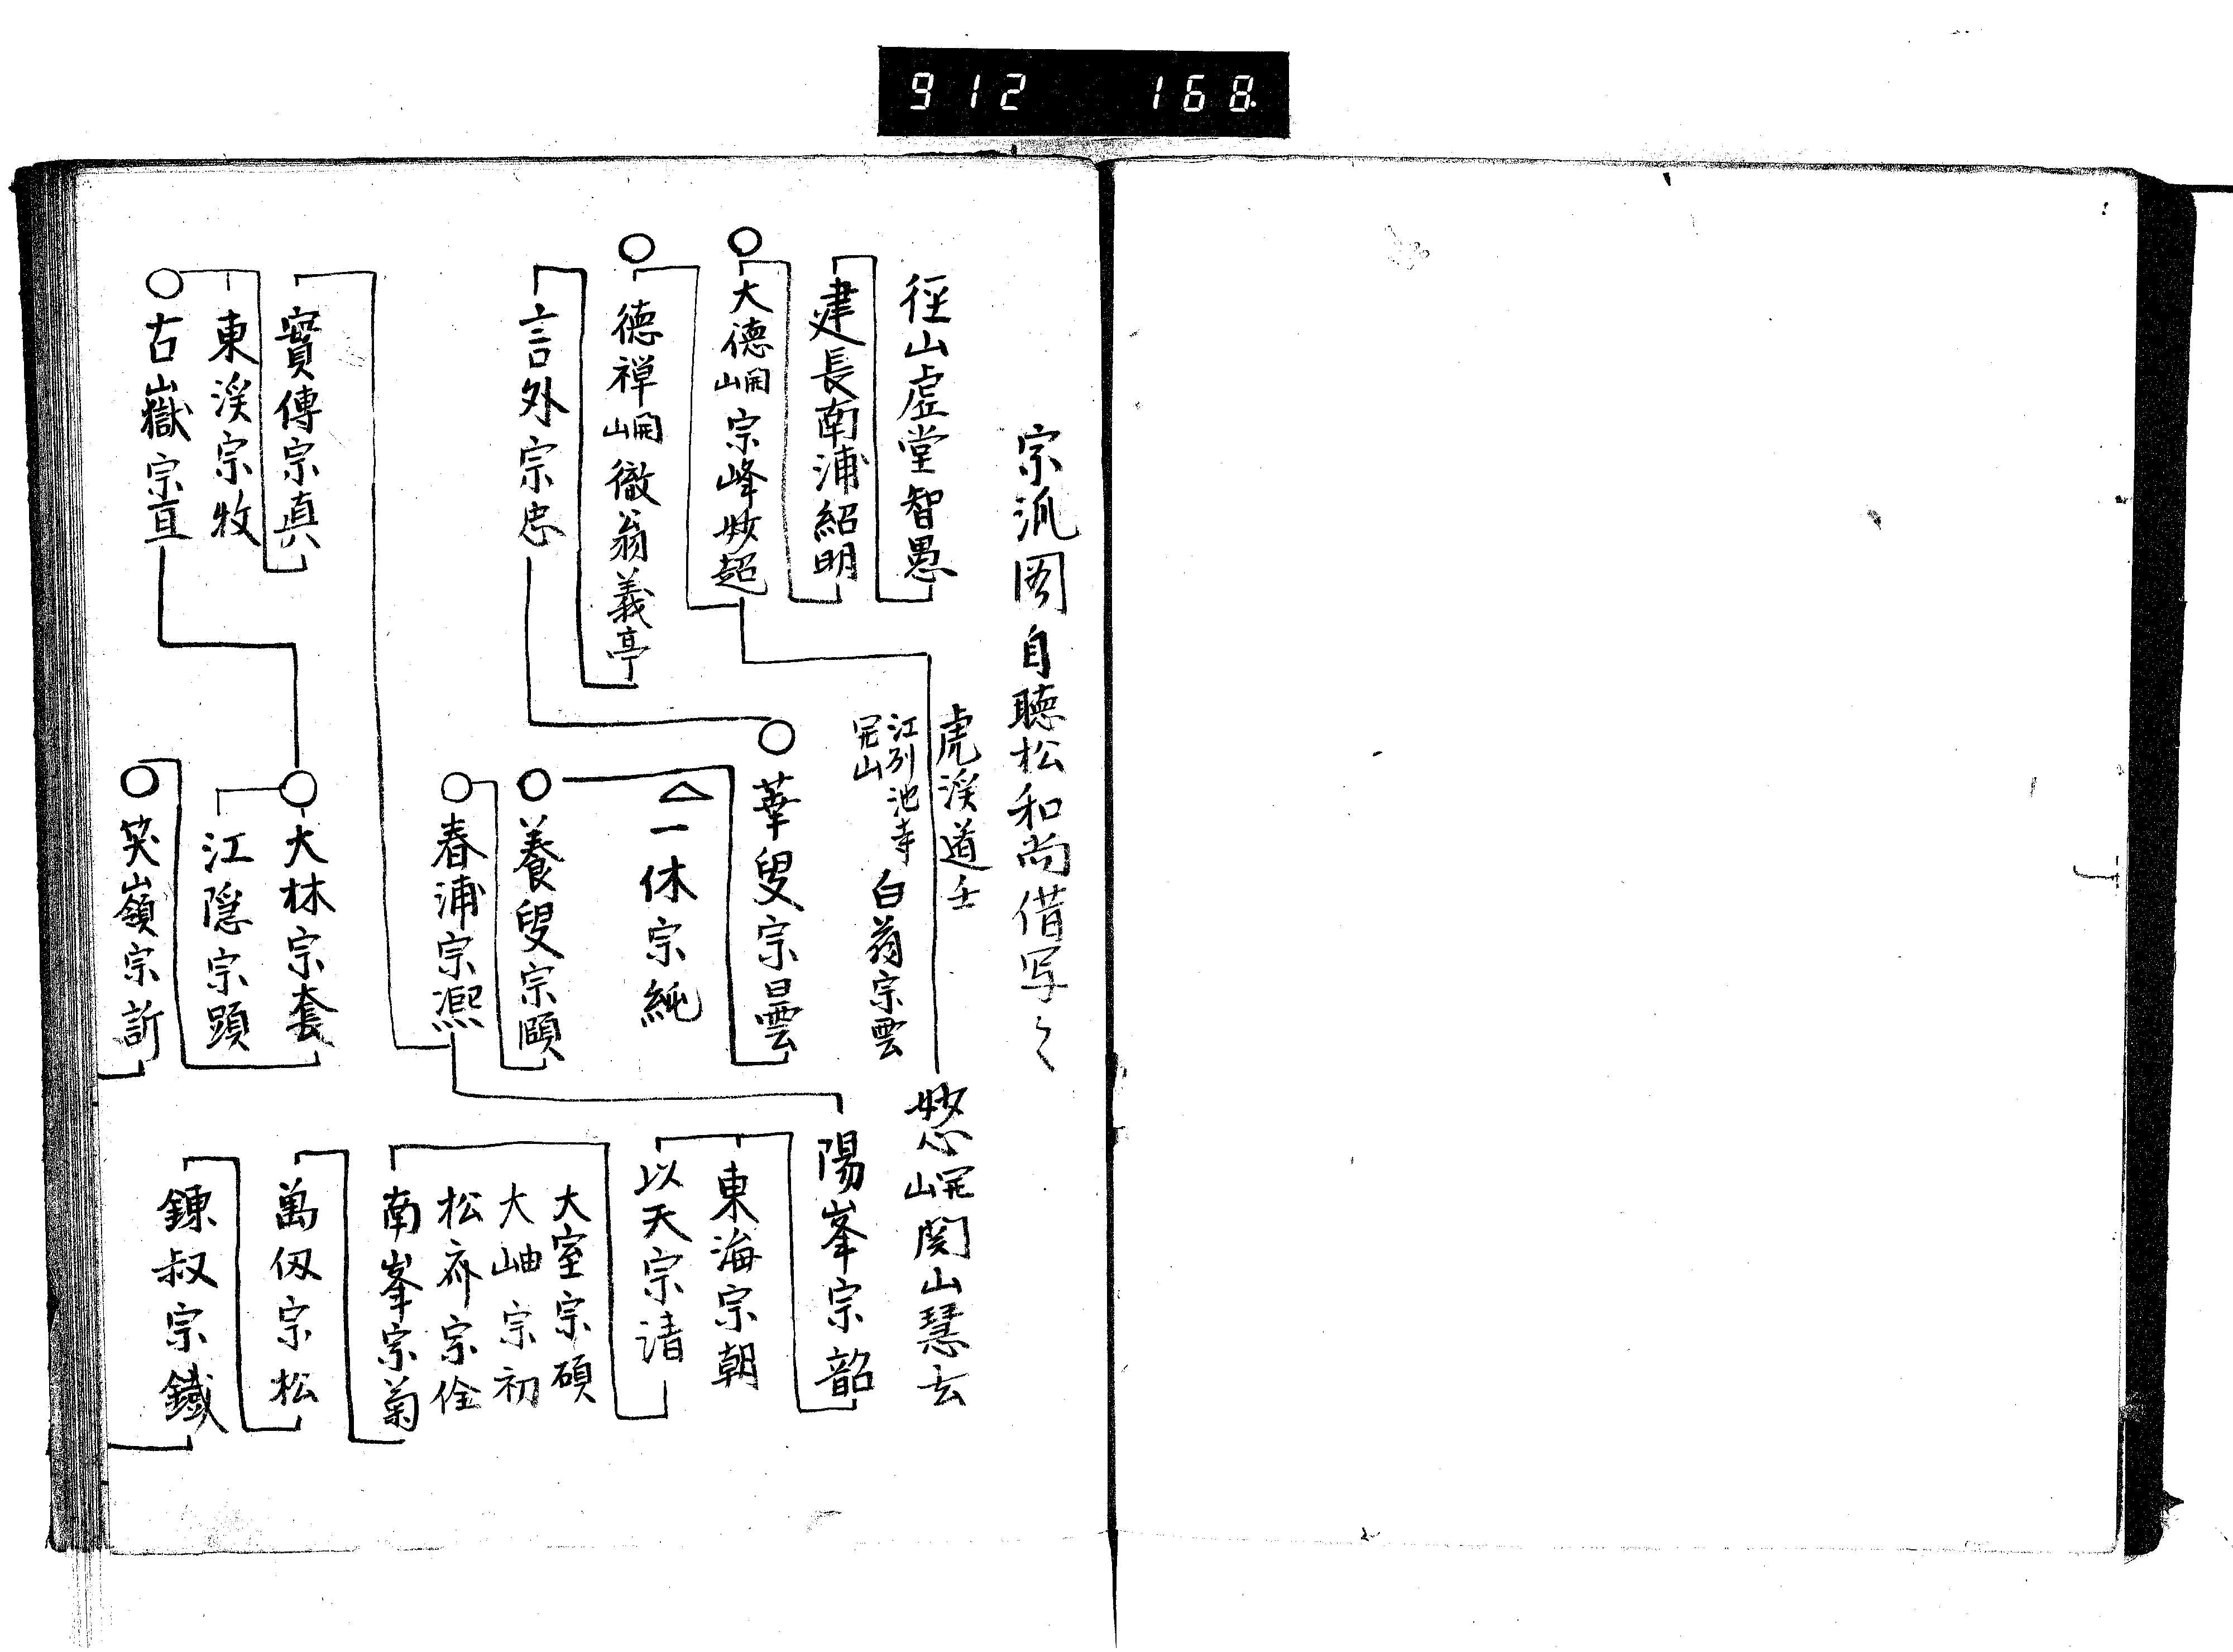 912 168
宗派图自聴松和尚借写之
徑山虚堂智愚
建長南浦紹明
大德開山宗峰妙超
德禅開山徹翁義亭
言外宗忠
實傳宗真
東渓宗牧
古嶽宗亘
虎渓道壬
江列池寺开山
白翁宗雲
華叟宗曇
一休宗純
養叟宗頤
春浦宗凞
大林宗套
江隠宗顕
笑嶺宗訢
妙心开山関山慧玄
陽峯宗韶
東海宗朝
以天宗清
大室宗碩
大岫宗初
松斎宗佺
南峯宗菊
萬仭宗松
鍊叔宗鐵